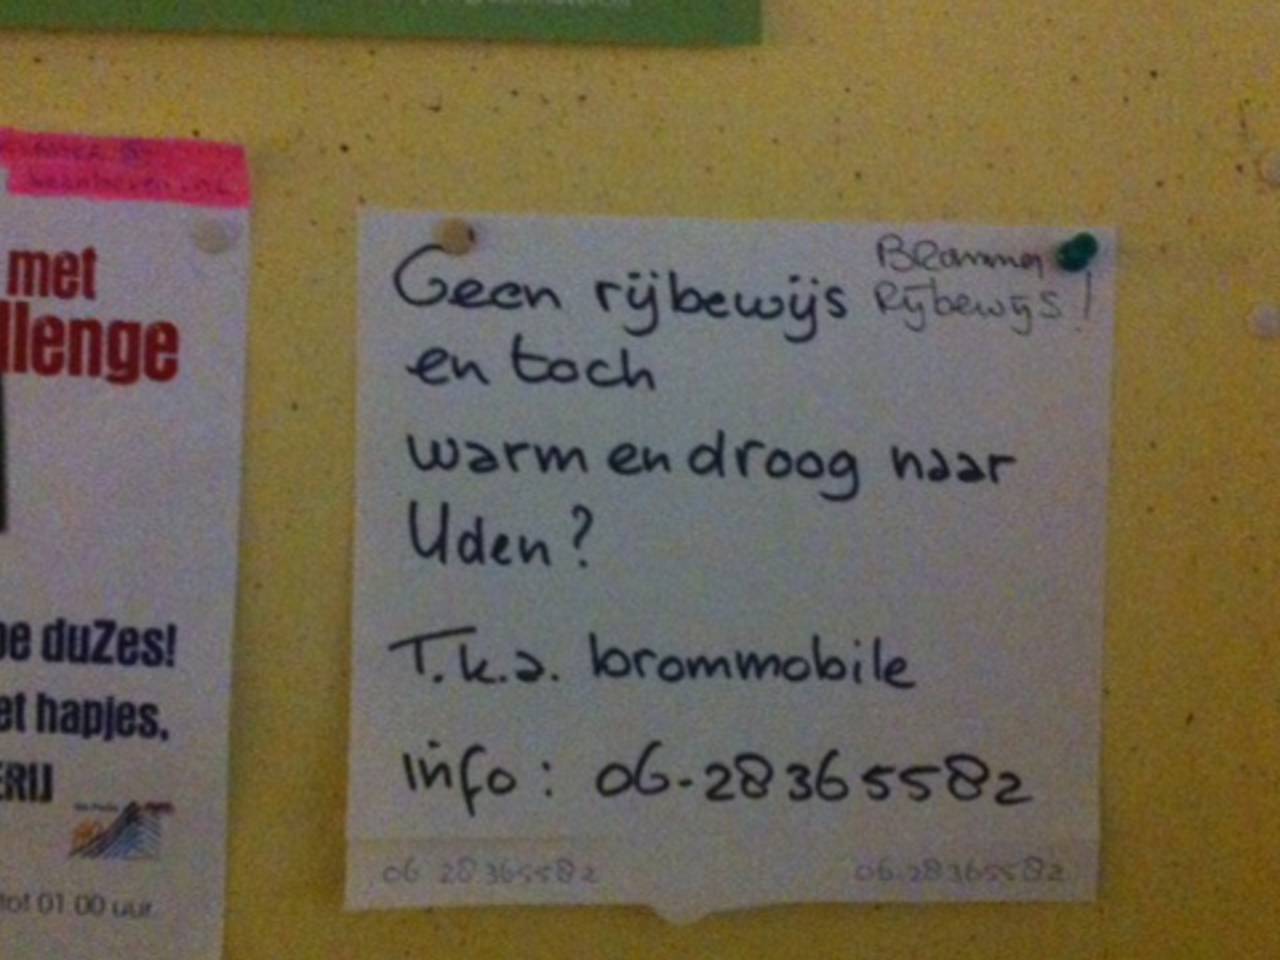 met
llenge
pe duZes!
et hapjes,
ERIJ
tot 01 00 uur
Geen rijbewijs
en toch
warm en droog naar
Uden?
T.k.a. brommobile
info: 06-28365582
Rijbewijs!
06 28365582
06-28365582